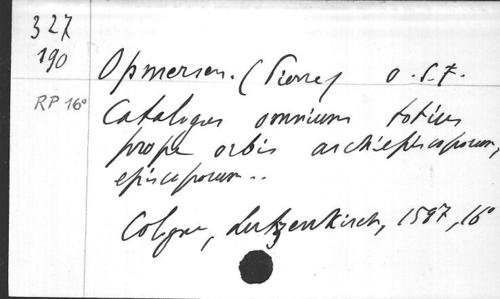 327
190
Opmersen. (Pierre) o.s.f.
RP 16°
Catalogus omnium totius
prope orbis archiepiscoporum,
episcoporum..
Cologne, Lutzenkirch, 1597, 16°